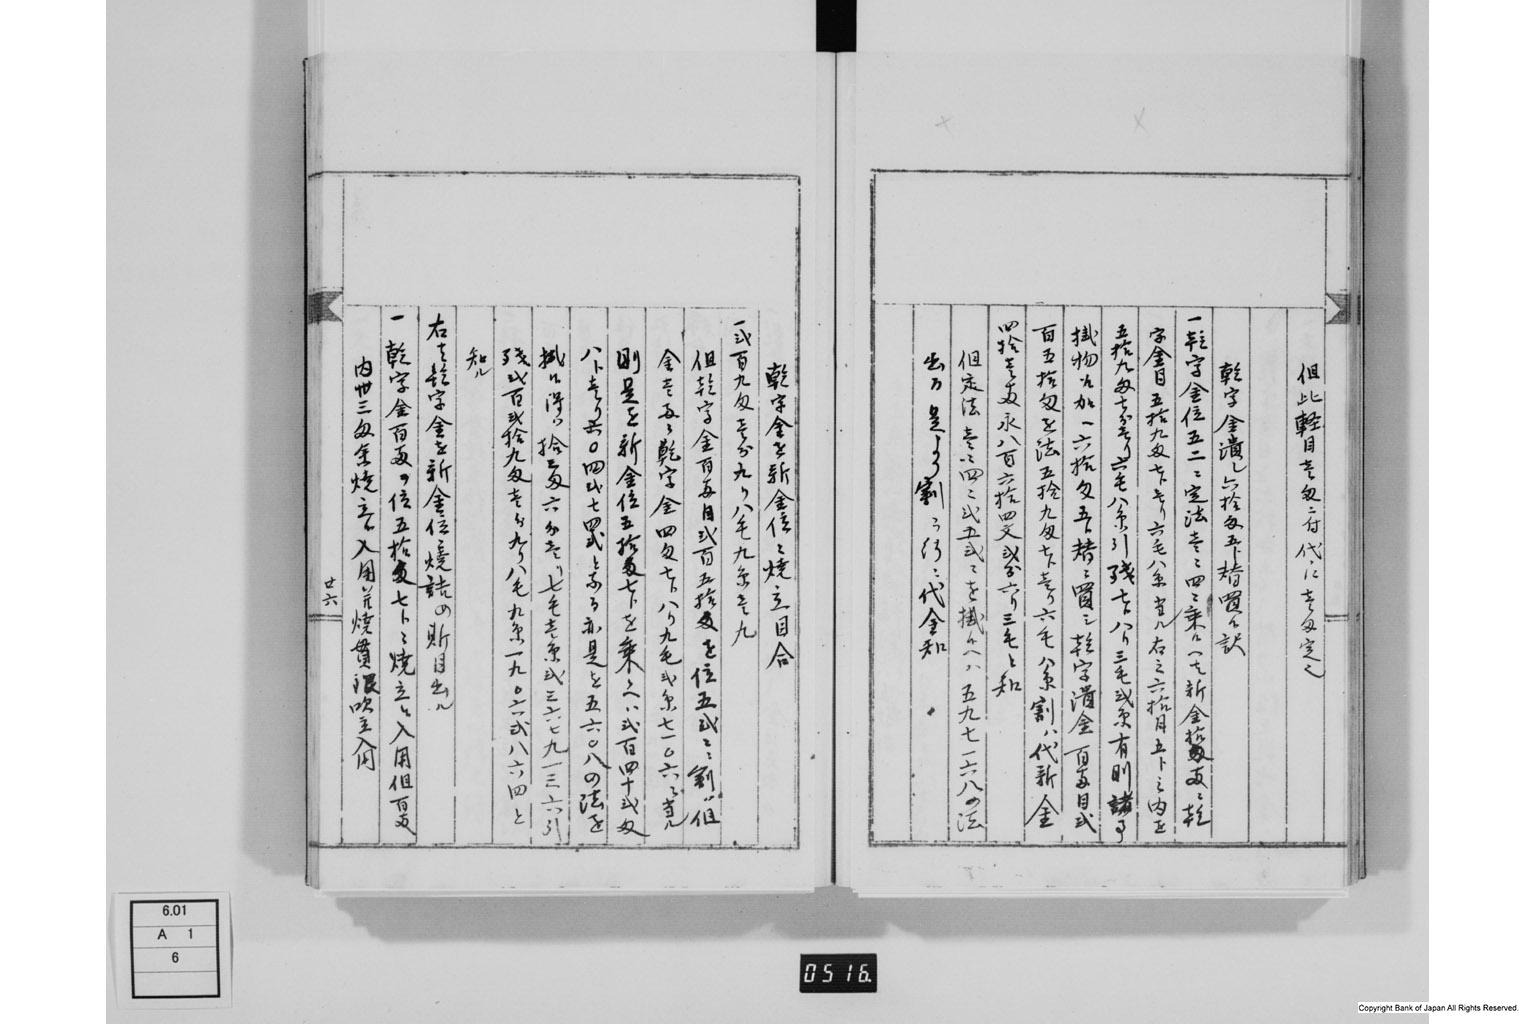 但此軽目壱匁ニ付代ニ〆壱匁定也
乾字金潰し六拾匁五卜替買上訳
一乾字金位五二ニ定法壱ニ四ニ乗候ヘ者新金拾両ニ乾
字金目五拾九匁七卜壱り六毛八糸当ル右之六拾目五卜之内を
五拾九匁七分壱り六毛八糸引残七卜八り三毛弐糸有則諸
掛物ニ加一六拾匁五卜替ニ買ニ乾字潰金百両目弐
百五拾匁を法五拾九匁七卜壱り六毛八糸割ハ代新金
四拾壱両永八百六拾四文弐分六り三毛と知
但定法壱ニ四ニ弐五弐ニを掛候ヘハ五九七一六八の法
出ル是より割ニ付ニ代金知
乾字金を新金位ニ焼立目合
一弐百九匁壱分九り八毛九糸壱九
但乾字金百両目弐百五拾匁を位五弐ニ割ハ但
金壱両ニ乾字金四匁七卜八り九毛弐糸七一〇六ニ当ル
則是を新金位五拾匁七卜を乗候ヘハ弐百四十弐匁
八卜壱り五〇四弐七四弐と成ル亦是を五六〇八の法を
掛候得ハ拾三匁六分壱り七毛壱糸弐三六七九一三六引
残弐百弐拾九匁壱分九り八毛九糸一九〇六弐八六四と
知ル
右者乾字金を新金位ニ焼詰の斯目出ル
一乾字金百両の位五拾匁七卜ニ焼立候入用但百両
内卅三匁余焼立候入用并焼貫銀吹立入用
廿六
6.01
A 1
6
0516.
Copyright Bank of Japan All Rights Reserved.